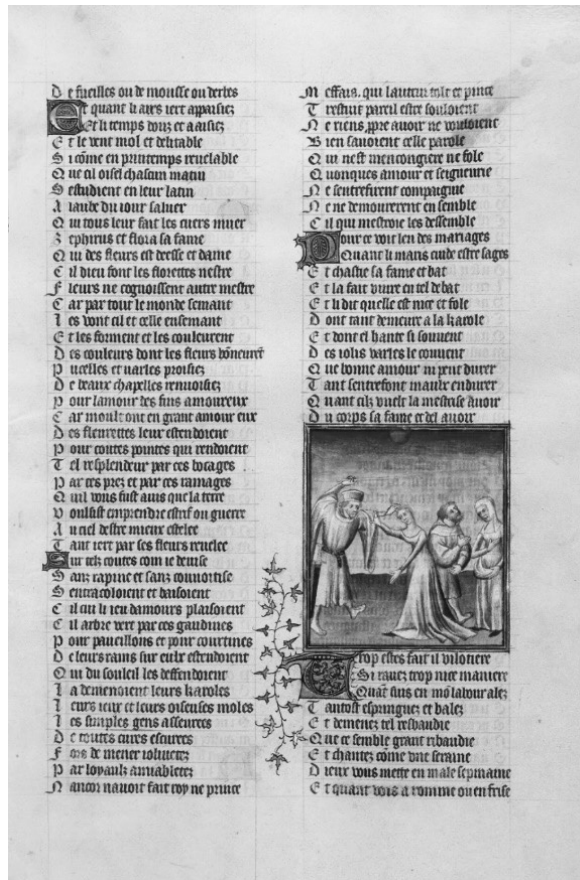 D e fueilles ou de mousse ou derbes
Et quant li airs iert appaisiez
Et li temps douz et aaisiez
E t le vent mol et delitable
S i come en printemps renclable
Q ue cil oisel chascun matin
S estudient en leur latin
A laube du iour saluer
Q ui tous leur fait les cuers muer
Z ephirus et flora sa fame
Q ui des fleurs est deesse et dame
C il dieu font les florettes nestre
F leurs ne cognoissent autre mestre
C ar par tout le monde semant
L es vont cil et celle ensemant
E t les forment et les couleurent
D es couleurs dont les fleurs honeurent
P ucelles et varles proisiez
D e beaux chapelles renvoisiez
P our lamour des fins amoureux
C ar moult ont en grant amour eux
D es fleurettes leur estendoient
P our coutes pointes qui rendoient
T el resplendeur par ces bocages
P ar ces prez et par ces ramages
Q uil vous fust auis que la terre
V oulsist emprendre estrif ou guerre
A u ciel destre mieux estelee
T ant iert par ses fleurs reuelee
Sur telz coutes com ie deuise
S anz rapine et sanz couuoitise
S entracoloient et baisoient
C il cui li ieu damours plaisoient
C il arbre vert par ces gaudines
P our paueillons et pour courtines
D e leurs rains sur eulx estendoient
Q ui du souleil les deffendoient
L a demenoient leurs karoles
L eurs ieux et leurs oiseuses moles
L es simples gens asseurees
D e toutes cures escurees
F ors de mener ioliuetez
P ar loyaulx amiabletez
N ancor nauoit fait roy ne prince
M effais qui lautrui tolt et pince
T restuit pareil estre souloient
N e riens ppre auoir ne vouloient
B ien sauoient celle parole
Q ui nest mencongiere ne fole
Q uonques amour et seigneurie
N e sentrefirent compaignie
N e ne demourerent en semble
C il qui mestroie les dessemble
Pour ce voit len des mariages
Quant li maris cuide estre sages
E t chastie sa fame et bat
E t la fait viure en tel debat
E t li dit quelle est nice et fole
D ont tant demeure a la karole
E t dont el hante si souuent
D es iolis varles le conuent
Q ue bonne amour ni peut durer
T ant sentrefont maulx endurer
Q uant cilz vuelt la mestrise auoir
D u corps sa fame et del auoir
Trop estes fait il vilotiere
Si rauez trop nice maniere
Quat suis en mo labour alez
T antost espringuez et balez
E t demenez tel resbaudie
Q ue ce semble grant ribaudie
E t chantez come vne seraine
D ieux vous mette en male sepmaine
E t quant vois a romme ou en frise